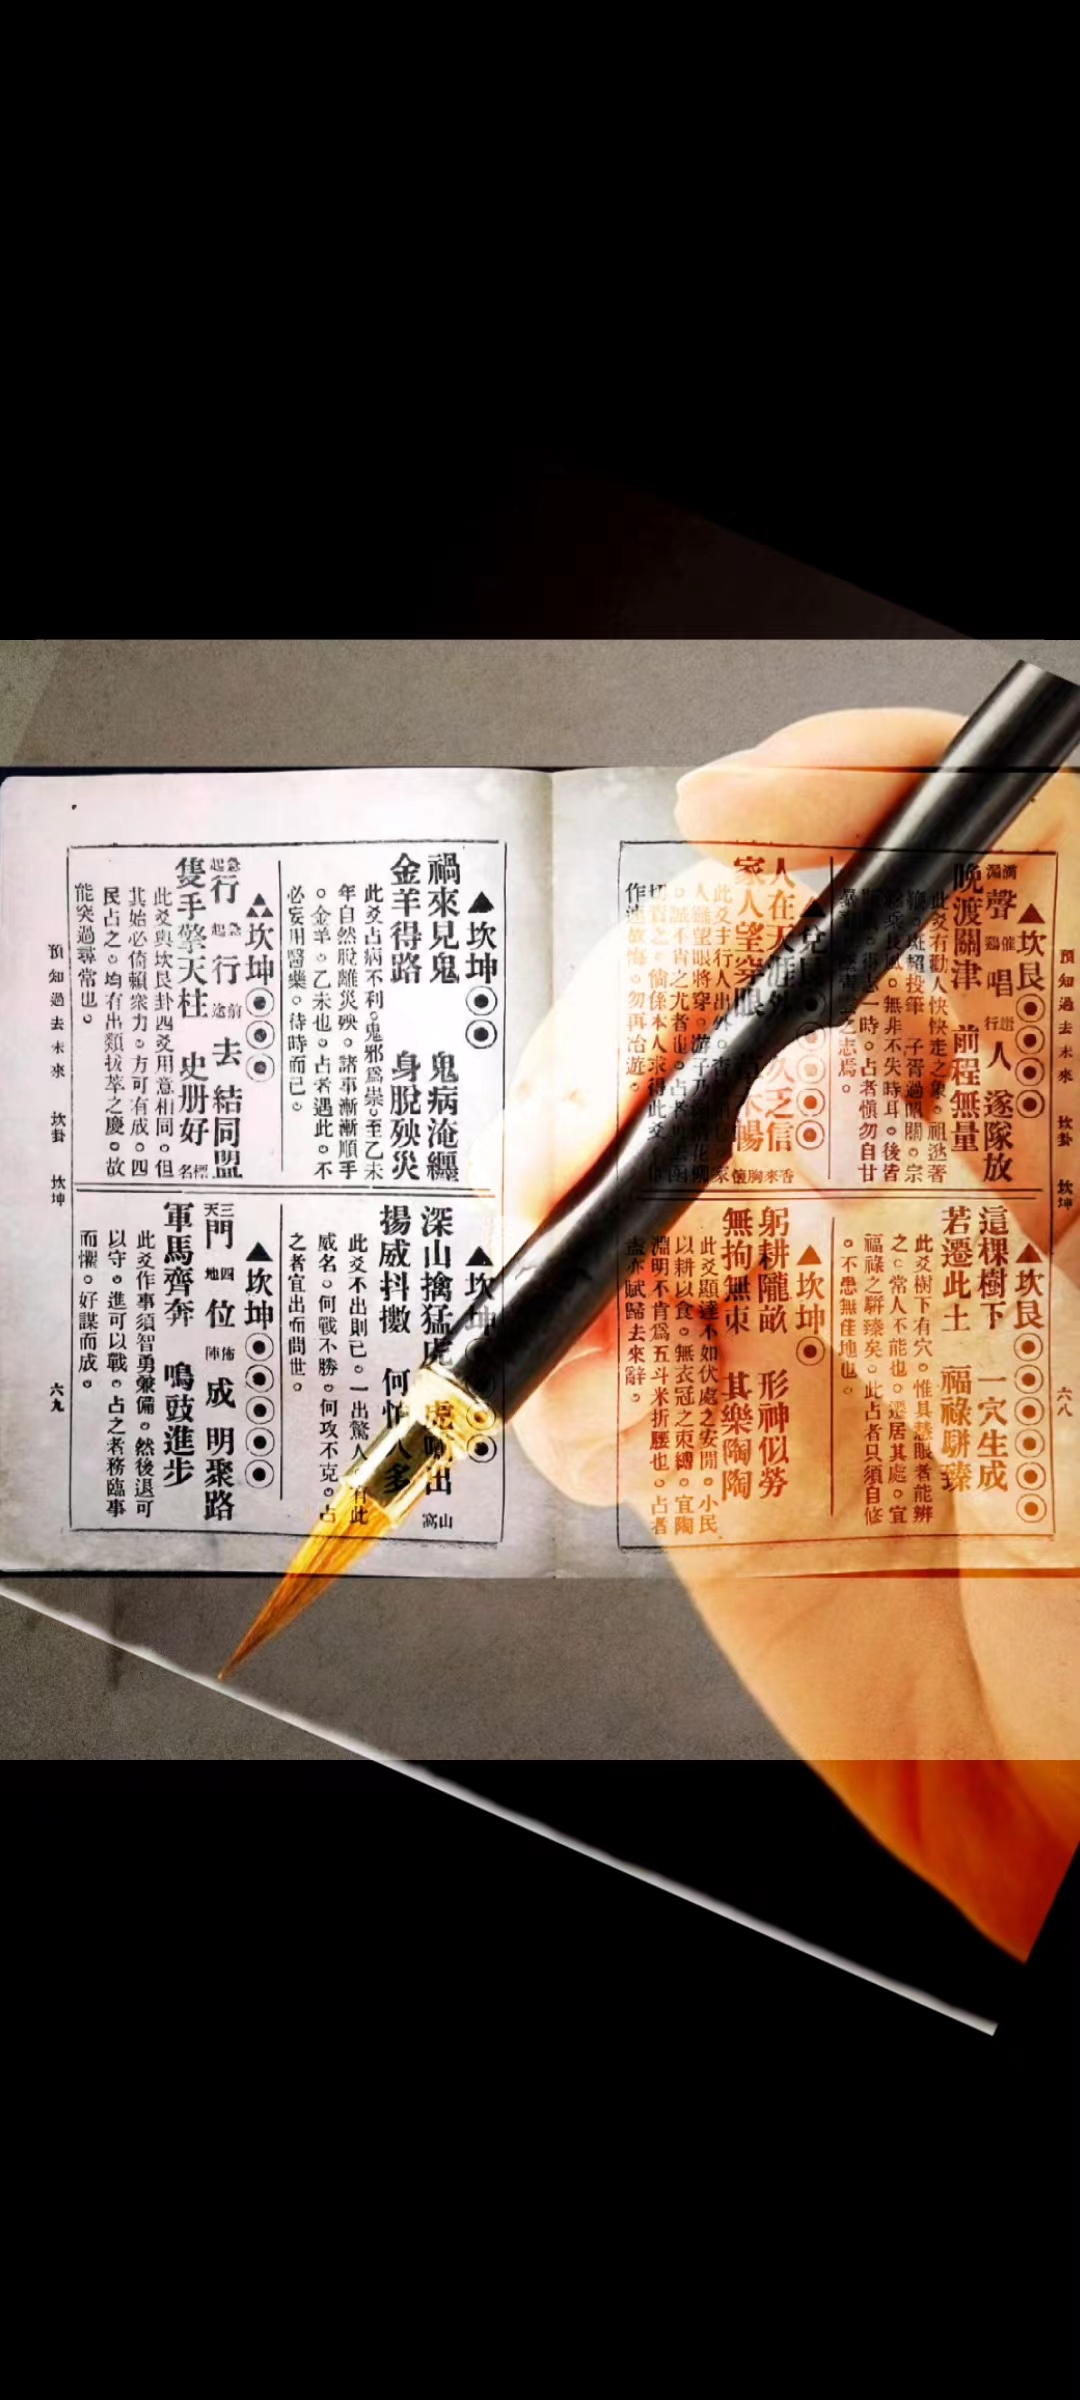 ▲坎艮◉◉◉◉
漏滴聲 鷄催唱 行遊人 遂隊放
晚渡關津 前程無量
此爻有勸人快快走之象。祖逖著
後皆
時。占者愼勿自甘
之志焉。
人在天涯外 乏信
家人望穿眼
此爻主行人出外。
人雖望眼將穿。游子乃
。誠不肖之尤者也。占者
倘係本人求得此爻
作速改悔。勿再冶遊。
▲坎艮◉◉◉◉◉◉
這棵樹下 一穴生成
若遷此土 福祿駢臻
此爻樹下有穴。惟具慧眼者能辨
之。常人不能也。遷居其處。宜
福祿之駢臻矣。此占者只須自修
。不患無佳地也。
▲坎坤◉
躬耕隴畝 形神似勞
無拘無束 其樂陶陶
此爻顯達不如伏處之安閒。小民
以耕以食。無衣冠之束縛。宜陶
淵明不肯爲五斗米折腰也。占者
盍亦賦歸去來辭。
預知過去未來 坎卦 坎坤 六八
▲坎坤◉◉
禍來見鬼 鬼病淹纏
金羊得路 身脫殃災
此爻占病不利。鬼邪爲崇。至乙未
年自然脫離災殃。諸事漸漸順手
。金羊。乙未也。占者遇此。不
必妄用醫藥。待時而已。
坎坤◉◉◉
急起行 急起行 前途去 結同盟
隻手擎天柱 史册好標名
此爻與坎艮卦四爻用意相同。但
其始必倚賴衆力。方可有成。四
民占之。均有出類拔萃之慶。故
能突過尋常也。
▲坎坤
深山擒猛虎 出山窩
揚威抖擻 何怕人多
此爻不出則已。一出驚人。有此
威名。何戰不勝。何攻不克。占
之者宜出而問世。
▲坎坤◉◉◉◉◉
三天門 四地位 佈陣成 明聚路
軍馬齊奔 鳴鼓進步
此爻作事須智勇兼備。然後退可
以守。進可以戰。占之者務臨事
而懼。好謀而成。
預知過去未來 坎卦 坎坤 六九